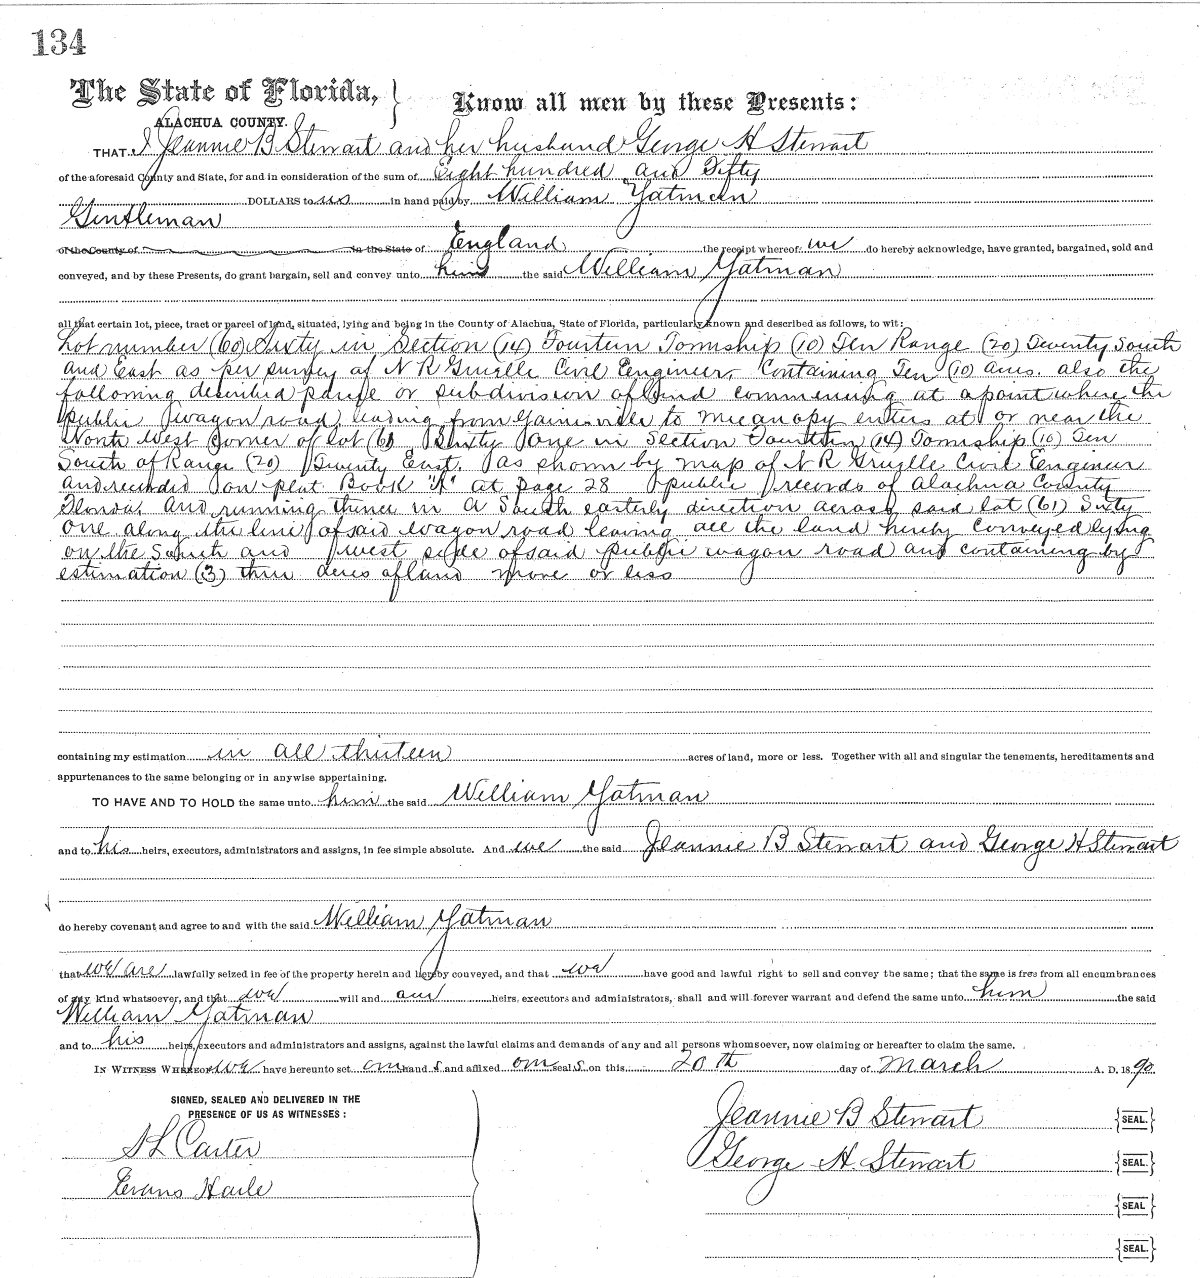 134
The State of Florida, } Know all men by these Presents:
ALACHUA COUNTY.
THAT I Jeannie B Stewart and her husband George H Stewart
of the aforesaid County and State, for and in consideration of the sum of Eight hundred and Fifty
DOLLARS to us in hand paid by William Yatman
Gentleman
of the County of in the State of England the receipt whereof we do hereby acknowledge, have granted, bargained, sold and
conveyed, and by these Presents, do grant bargain, sell and convey unto him the said William Yatman
all that certain lot, piece, tract or parcel of land, situated, lying and being in the County of Alachua, State of Florida, particularly known and described as follows, to wit:
Lot number (60) Sixty in Section (14) Fourteen Township (10) Ten Range (20) Twenty South
and East as per survey of N R Gruelle Civil Engineer, Containing Ten (10) acres. also the
following described parcel or subdivision of land commencing at a point where the
public wagon road leading from Gainesville to Micanopy enters at or near the
North West Corner of lot (61) Sixty one in Section Fourteen (14) Township (10) Ten
South of Range (20) Twenty East. as shown by map of N R Gruelle Civil Engineer
and recorded on plat Book "A" at page 28 public records of Alachua County
Florida and running thence in a South easterly direction across said lot (61) Sixty
one along the line of said wagon road leaving all the land hereby conveyed lying
on the South and west side of said public wagon road and containing by
estimation (3) three acres of land more or less
containing my estimation in all thirteen acres of land, more or less. Together with all and singular the tenements, hereditaments and
appurtenances to the same belonging or in anywise appertaining.
TO HAVE AND TO HOLD the same unto him the said William Yatman
and to his heirs, executors, administrators and assigns, in fee simple absolute. And we the said Jeannie B Stewart and George H Stewart
do hereby covenant and agree to and with the said William Yatman
that we are lawfully seized in fee of the property herein and hereby conveyed, and that we have good and lawful right to sell and convey the same; that the same is free from all encumbrances
of any kind whatsoever, and that we will and our heirs, executors and administrators, shall and will forever warrant and defend the same unto him the said
William Yatman
and to his heirs, executors and administrators and assigns, against the lawful claims and demands of any and all persons whomsoever, now claiming or hereafter to claim the same.
IN WITNESS WHEREOF we have hereunto set our hand s and affixed our seal s on this 20th day of March A. D. 1890.
SIGNED, SEALED AND DELIVERED IN THE
PRESENCE OF US AS WITNESSES:
Jeannie B Stewart {SEAL.}
S L Carter
George H Stewart {SEAL.}
Evans Haile
{SEAL}
{SEAL.}